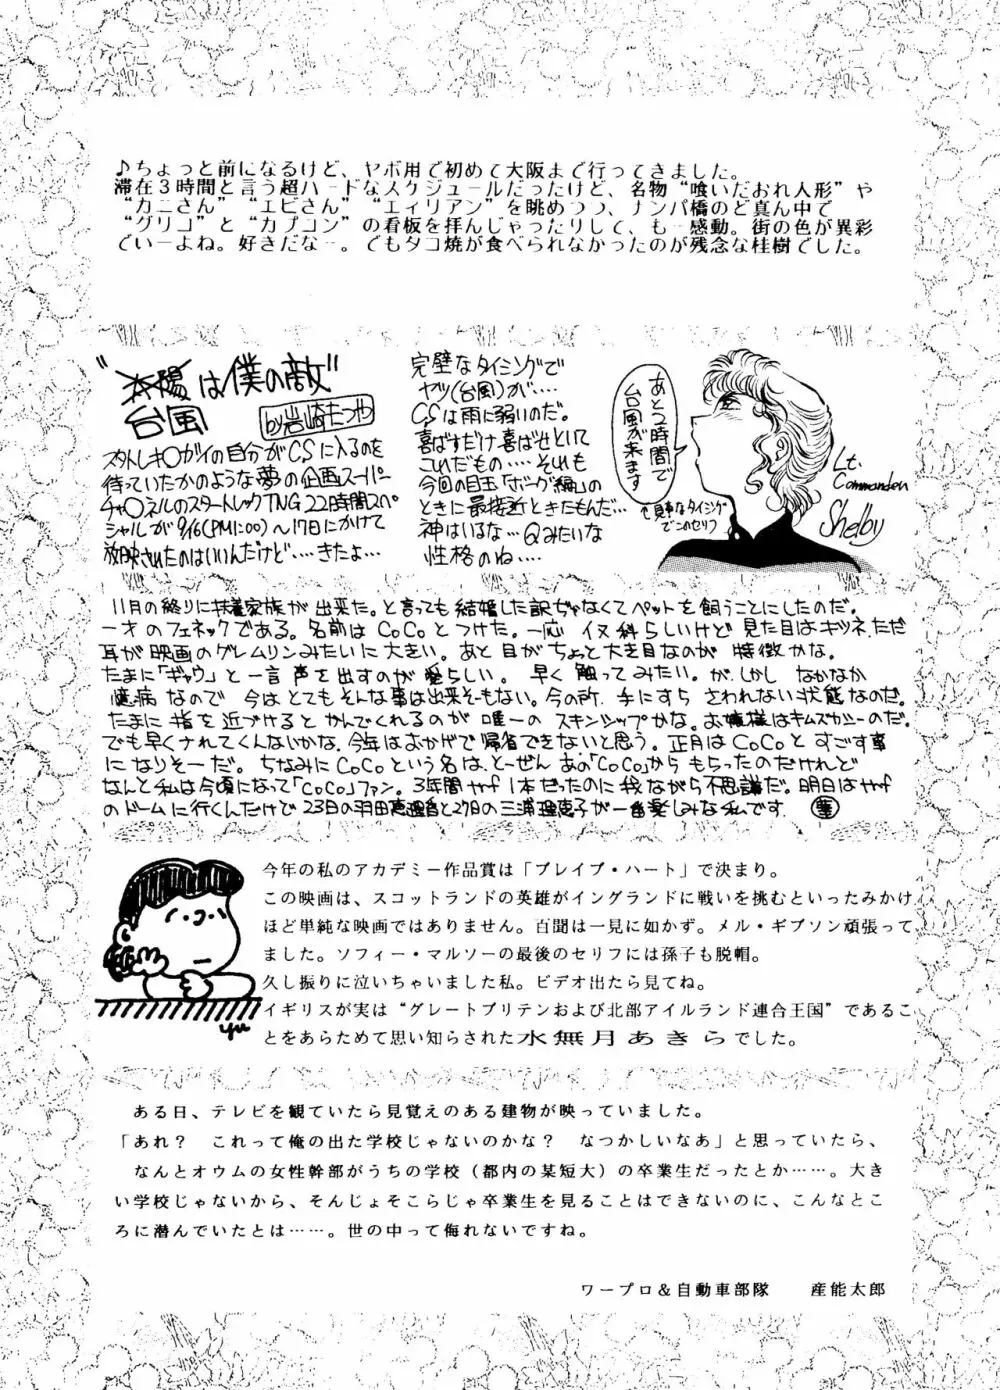 ♪ちょっと前になるけど、ヤボ用で初めて大阪まで行ってきました。
滞在３時間と言う超ハードなスケジュールだったけど、名物“喰いだおれ人形”や
“カニさん”“エビさん”“エイリアン”を眺めつつ、ナンパ橋のど真ん中で
“グリコ”と“カプコン”の看板を拝んじゃったりして、も一感動。街の色が異彩
でいーよね。好きだなー。でもタコ焼が食べられなかったのが残念な桂樹でした。
“太陽は僕の敵”
台風
by岩崎たつや
スタトレキ○ガイの自分がCSに入るのを
待っていたかのような夢の企画スーパー
チャ○ネルのスタートレックTNG 22時間スペ
シャルが9/16(PM1:00)〜17日にかけて
放映されたのはいいんだけど‥‥きたよ…
完壁なタイミングで
ヤツ(台風)が‥‥
CSは雨に弱いのだ。
喜ばすだけ喜ばせといて
これだもの‥‥それも
今回の目玉「ボーグ編」の
ときに最接近ときたもんだ…
神はいるな…Qみたいな
性格のね‥‥
あと2時間で
台風が来ます
見事なタイミング
でこのセリフ
Lt.
Commander
Shelby
11月の終りに扶養家族が出来た。と言っても結婚した訳ぢゃなくてペットを飼うことにしたのだ。
一才のフェネックである。名前はCoCoとつけた。一応イヌ科らしいけど見た目はキツネ、ただ
耳が映画のグレムリンみたいに大きい。あと目がちょと大き目なのが特徴かな。
たまに「ギャウ」と一言声を出すのが愛らしい。早く触ってみたい。が、しかしなかなか
臆病なので今はとてもそんな事は出来そーもない。今の所、手にすらさわれない状態なのだ。
たまに指を近づけるとかんでくれるのが唯一のスキンシップかな。お嬢様はキムズカシーのだ。
でも早くナれてくんないかな。今年はおかげで帰省できないと思う。正月はCoCoとすごす事
になりそーだ。ちなみにCoCoという名は、とーぜんあの「CoCo」からもらったのだけれど
なんと私は今頃になって「CoCo」ファン。3年間やf1本だったのに我ながら不思議だ。明日はやf
のドームに行くんだけど23日の羽田恵理香と27日の三浦理恵子が一番楽しみな私です。
今年の私のアカデミー作品賞は「ブレイブ・ハート」で決まり。
この映画は、スコットランドの英雄がイングランドに戦いを挑むといったみかけ
ほど単純な映画ではありません。百聞は一見に如かず。メル・ギブソン頑張って
ました。ソフィー・マルソーの最後のセリフには孫子も脱帽。
久し振りに泣いちゃいました私。ビデオ出たら見てね。
イギリスが実は“グレートブリテンおよび北部アイルランド連合王国”であるこ
とをあらためて思い知らされた水無月あきらでした。
yu
ある日、テレビを観ていたら見覚えのある建物が映っていました。
「あれ？　これって俺の出た学校じゃないのかな？　なつかしいなあ」と思っていたら、
なんとオウムの女性幹部がうちの学校（都内の某短大）の卒業生だったとか……。大き
い学校じゃないから、そんじょそこらじゃ卒業生を見ることはできないのに、こんなとこ
ろに潜んでいたとは……。世の中って侮れないですね。
ワープロ＆自動車部隊　　産能太郎